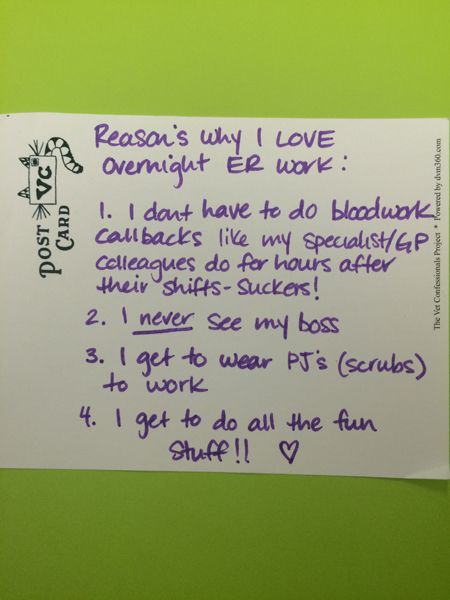 Reason's why I LOVE
overnight ER work:
1. I dont have to do bloodwork
callbacks like my specialist/GP
colleagues do for hours after
their shifts - suckers!
2. I never see my boss
3. I get to wear PJ's (scrubs)
to work
4. I get to do all the fun
stuff!! ♡
VC
POST
CARD
The Vet Confessionals Project * Powered by dvm360.com